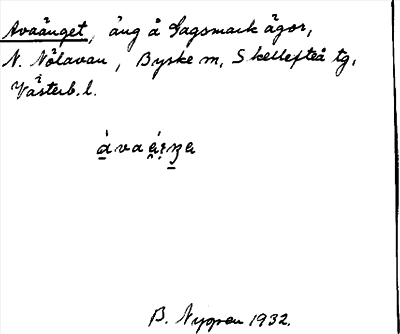 Avaänget, äng å Gagsmark ägor,
N. Nölavan, Byske m, Skellefteå tg,
Västerb. l.
B. Nygren 1932.